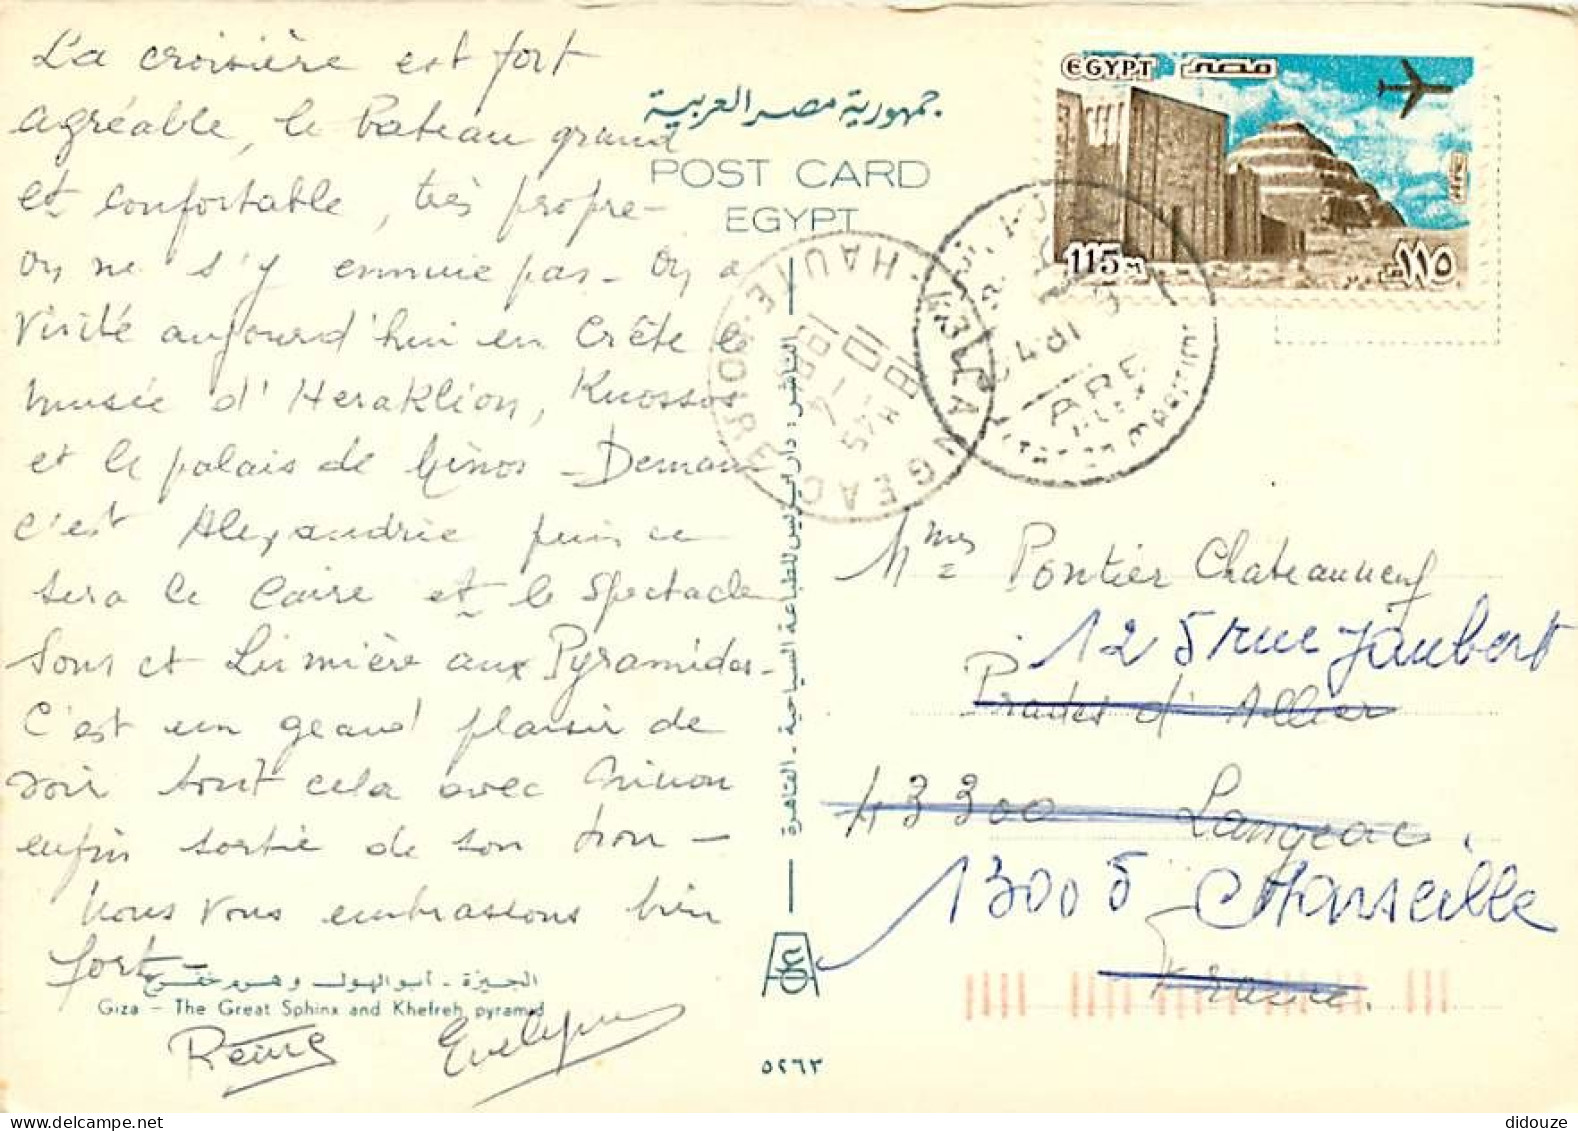 La croisière est fort
agréable, le bateau grand
et confortable, très propre -
on ne s'y ennuie pas - on a
visité aujourd'hui en Crête le
musée d'Heraklion, Knossos
et le palais de Minos - Demain
c'est Alexandrie puis ce
sera le Caire et le Spectacle
Sons et Lumière aux Pyramides -
C'est un grand plaisir de
voir tout cela avec Ninon
enfin sortie de son trou -
Nous vous embrassons bien
fort -
الجيزة - أبو الهول وهرم خفرع
Giza - The Great Sphinx and Khefreh pyramid
Reine Evelyne
جمهورية مصر العربية
POST CARD
EGYPT
الناشر: دار لهنرت للطباعة السياحية - القاهرة
٥٢٦٣
EGYPT مصر
115 M ١١٥
LANGEAC HAUTE-LOIRE
ARE
Mmes Pontier Chateauneuf
125 rue Jaubert
Prades d'Allier
43300 Langeac.
13005 Marseille
France.
didouze